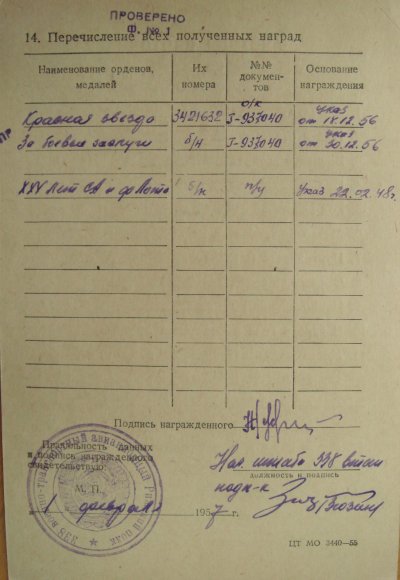 ПРОВЕРЕНО
Ф. № 1
14. Перечисление всех полученных наград
Наименование орденов, медалей
Их номера
№№ документов
Основание награждения
Красная звезда 3421632 о/к Г-937040 Указ от 18.12.56
За боевые заслуги б/н Г-937040 Указ от 30.12.56
XXX лет СА и флота б/н п/у Указ 22.02.48г.
Подпись награжденного
Правильность данных
и подпись награжденного
свидетельствую:
Нач. штаба 338
должность и подпись
М. П.
подп-к
1957 г.
ЦТ МО 3440—55